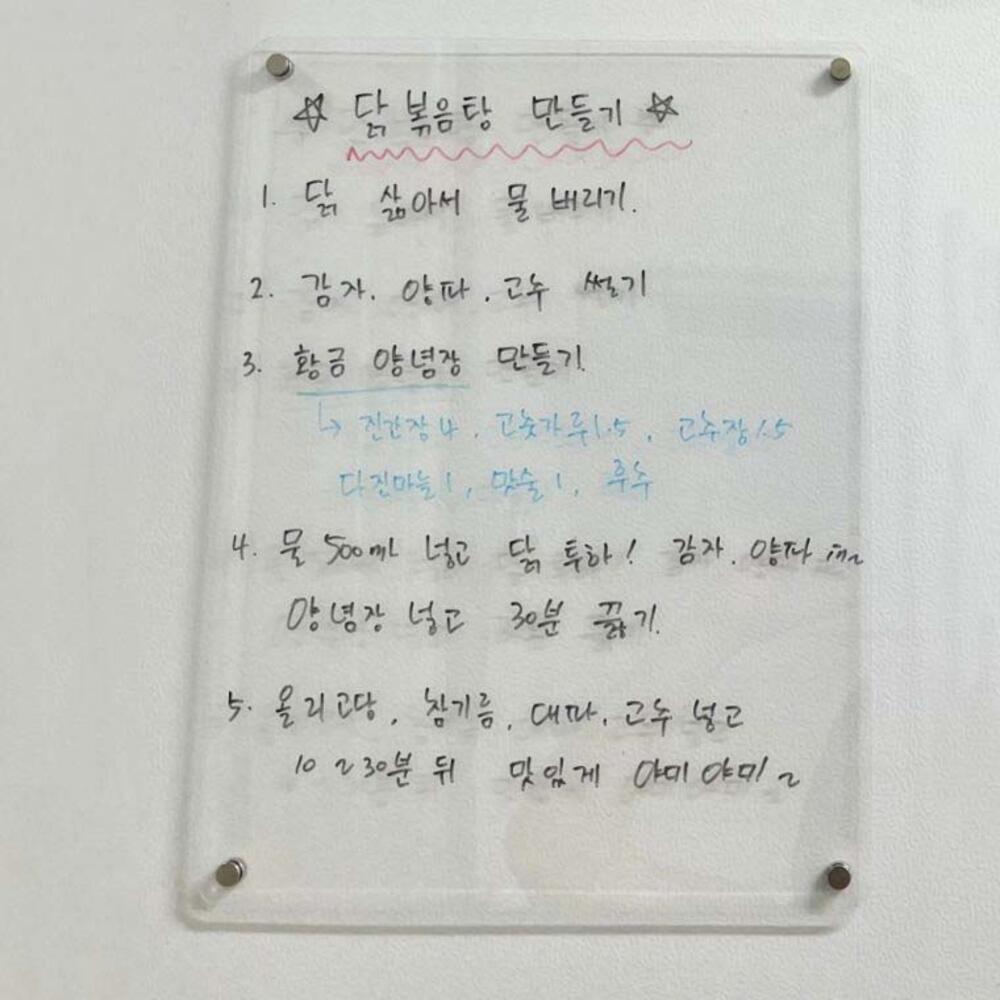 ☆ 닭볶음탕 만들기 ☆
1. 닭 삶아서 물 버리기.
2. 감자. 양파. 고추 썰기
3. 황금 양념장 만들기.
↳ 진간장 4, 고춧가루 1.5, 고추장 1.5
다진마늘 1, 맛술 1, 후추
4. 물 500ml 넣고 닭 투하! 감자. 양파
양념장 넣고 30분 끓기.
5. 올리고당, 참기름, 대파, 고추 넣고
10~30분 뒤 맛있게 야미야미~